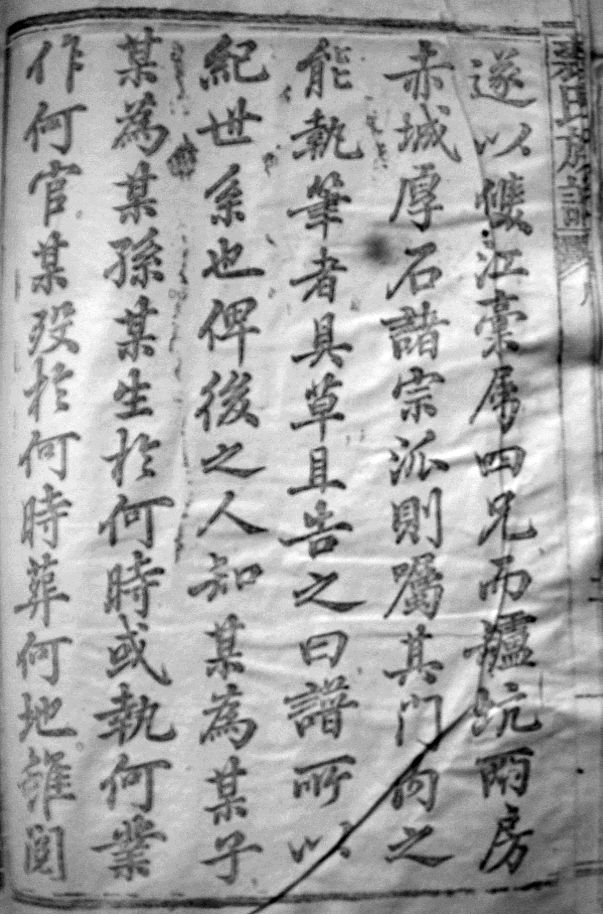 遂以雙江稾屬四兄而爐坑兩房
赤城厚石諸宗派則囑其門內之
能執筆者具草且告之曰譜所以
紀世系也俾後之人知某為某子
某為某孫某生於何時或執何業
作何官某歿於何時葬何地雖閱
氏族譜